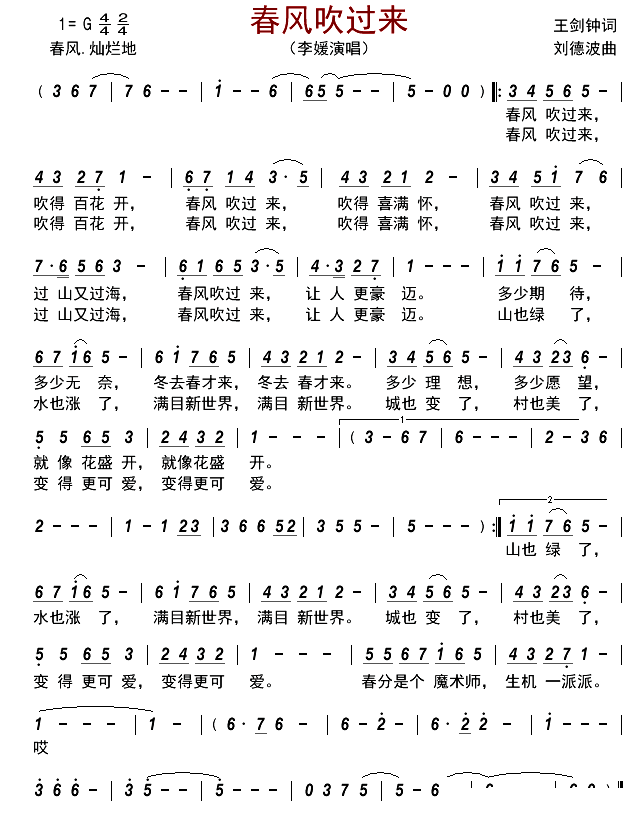 春风吹过来
1= G 4/4 2/4
王剑钟词
春风.灿烂地
（李媛演唱）
刘德波曲
( 3 6 7 | 7 6 - - | 1 - - 6 | 6 5 5 - - | 5 - 0 0 ) |: 3 4 5 6 5 - |
春风 吹过来,
春风 吹过来,
4 3 2 7 1 - | 6 7 1 4 3 · 5 | 4 3 2 1 2 - | 3 4 5 1 7 6 |
吹得 百花 开, 春风 吹过 来, 吹得 喜满 怀, 春风 吹过 来,
吹得 百花 开, 春风 吹过 来, 吹得 喜满 怀, 春风 吹过 来,
7 · 6 5 6 3 - | 6 1 6 5 3 · 5 | 4 · 3 2 7 | 1 - - - | 1 1 7 6 5 - |
过 山又过海, 春风吹过 来, 让 人 更豪 迈。 多少期 待,
过 山又过海, 春风吹过 来, 让 人 更豪 迈。 山也绿 了,
6 7 1 6 5 - | 6 1 7 6 5 | 4 3 2 1 2 - | 3 4 5 6 5 - | 4 3 2 3 6 - |
多少无 奈, 冬去春才来, 冬去 春才来。 多少 理 想, 多少愿 望,
水也涨 了, 满目新世界, 满目 新世界。 城也 变 了, 村也美 了,
5 5 6 5 3 | 2 4 3 2 | 1 - - - | ( 3 - 6 7 | 6 - - - | 2 - 3 6 |
1
就 像 花盛 开, 就像花盛 开。
变 得 更可 爱, 变得更可 爱。
2 - - - | 1 - 1 2 3 | 3 6 6 5 2 | 3 5 5 - | 5 - - - ) :| 1 1 7 6 5 - |
2
山也 绿 了,
6 7 1 6 5 - | 6 1 7 6 5 | 4 3 2 1 2 - | 3 4 5 6 5 - | 4 3 2 3 6 - |
水也涨 了, 满目新世界, 满目 新世界。 城也 变 了, 村也美 了,
5 5 6 5 3 | 2 4 3 2 | 1 - - - | 5 5 6 7 1 6 5 | 4 3 2 7 1 - |
变 得 更可 爱, 变得更可 爱。 春分是个 魔术师, 生机 一派派。
1 - - - | 1 - ( 6 · 7 6 | 6 - 2 - | 6 · 2 2 - | 1 - - - |
哎
3 6 6 - | 3 5 - - | 5 - - - | 0 3 7 5 | 5 - 6